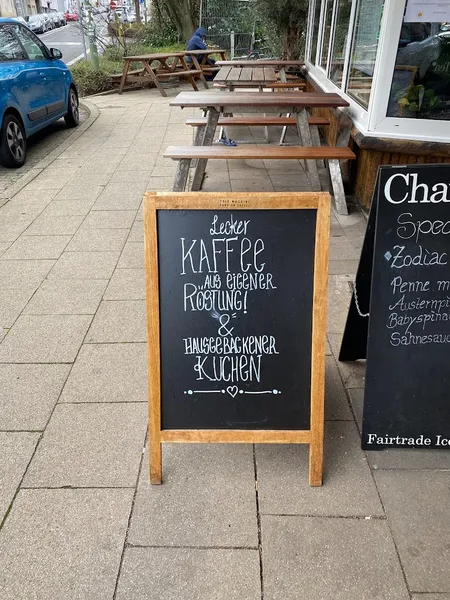 Lecker
KAFFEE
AUS EIGENER
RÖSTUNG!
&
HAUSGEBACKENER
KUCHEN
Cha
Spec
Zodiac
Penne m
Austernpi
Babyspina
Sahnesau
Fairtrade Ice